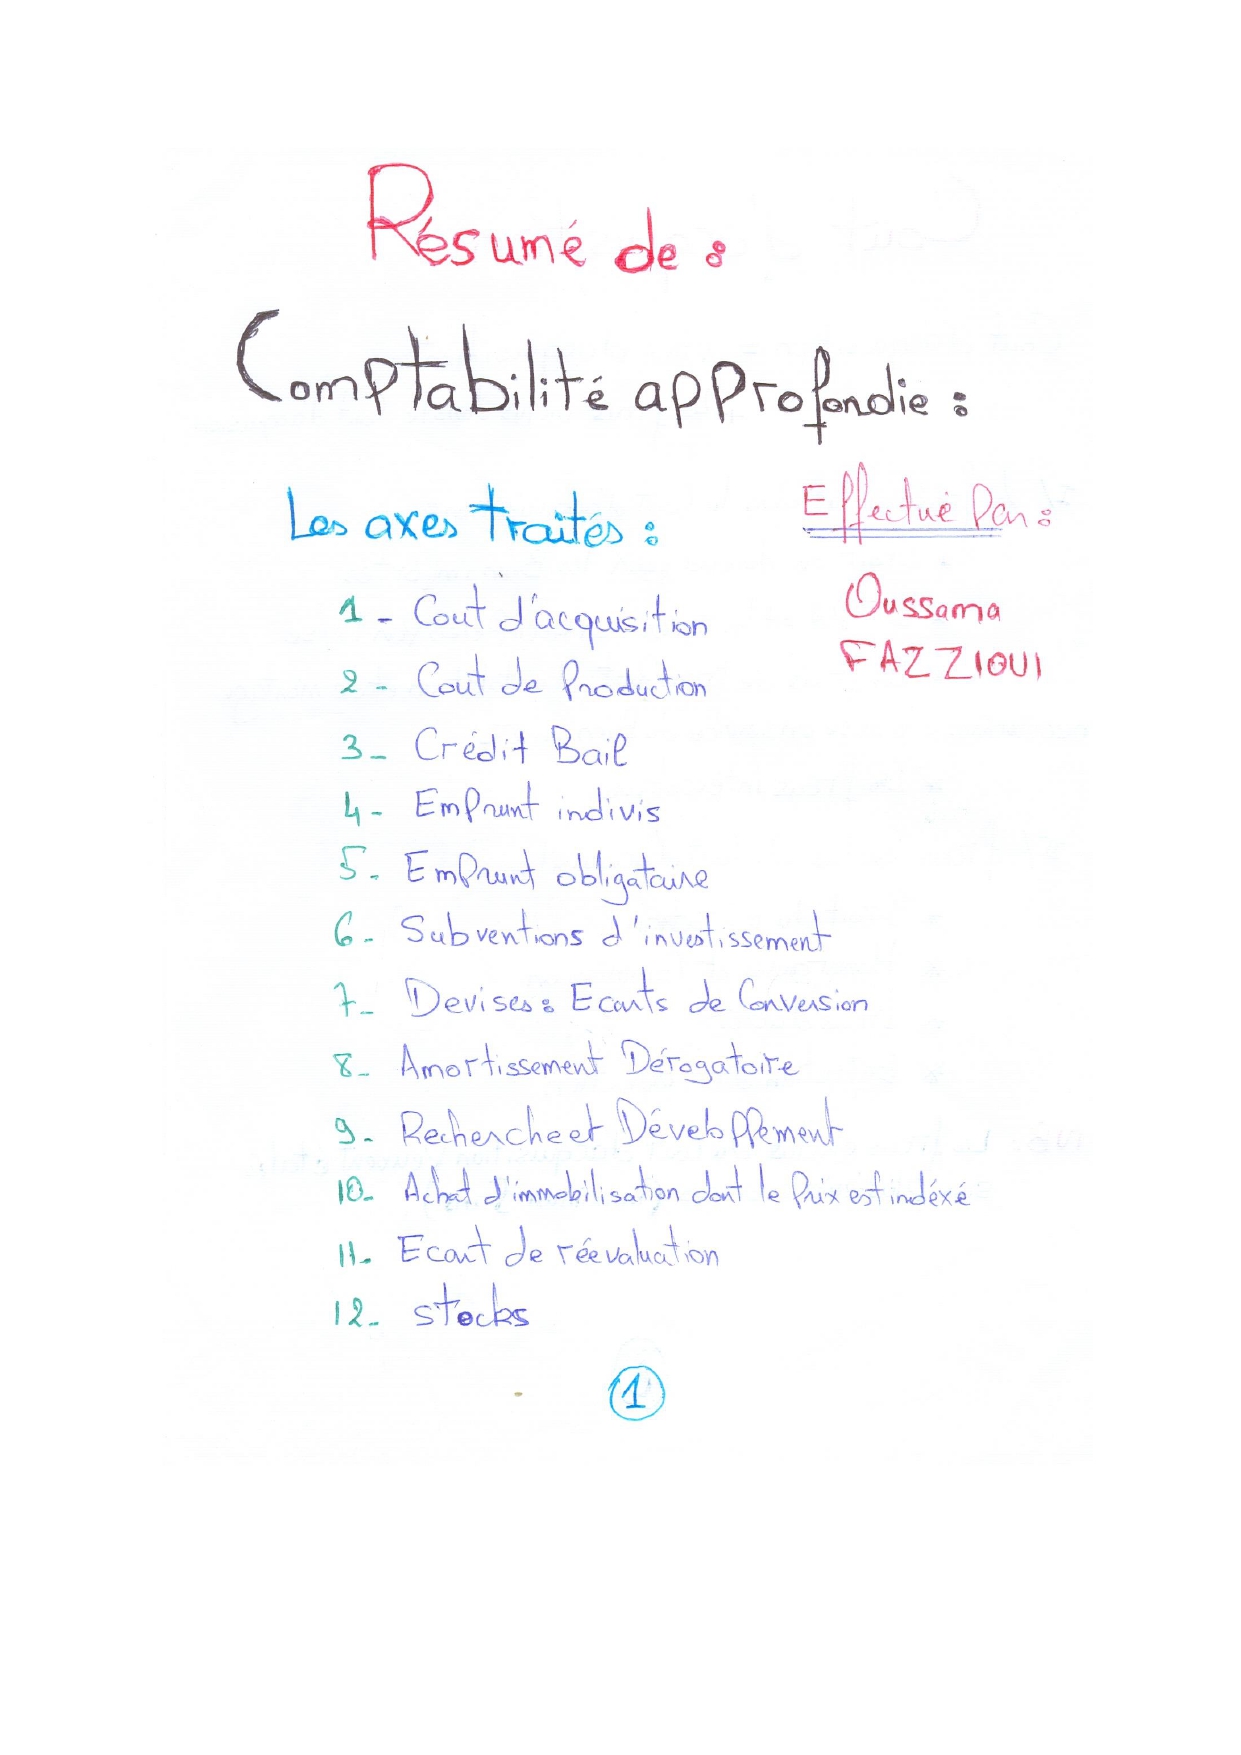 Résumé de :
Comptabilité approfondie :
Les axes traités :
Effectué Par :
Oussama
FAZZIOUI
1 - Cout d'acquisition
2 - Cout de Production
3 - Crédit Bail
4 - Emprunt indivis
5 - Emprunt obligataire
6 - Subventions d'investissement
7 - Devises : Ecarts de Conversion
8 - Amortissement Dérogatoire
9 - Recherche et Développement
10 - Achat d'immobilisation dont le Prix est indéxé
11 - Ecart de réevaluation
12 - stocks
1